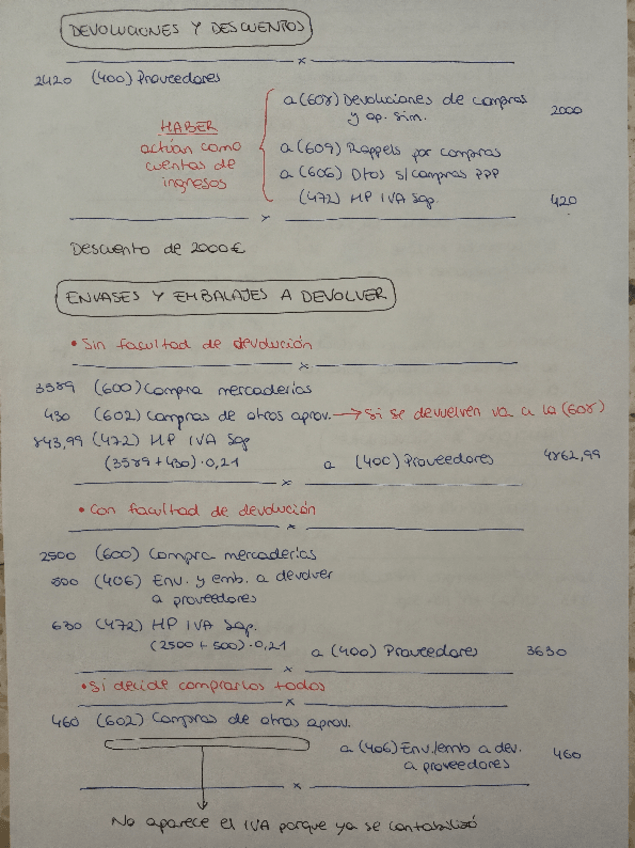 DEVOLUCIONES Y DESCUENTOS
x
2420 (400) Proveedores
a (608) Devoluciones de compras
y op. sim. 2000
HABER
actúan como
cuentas de
ingresos
a (609) Rappels por compras
a (606) Dtos s/compras PPP
(472) HP IVA Sop. 420
Descuento de 2000€
ENVASES Y EMBALAJES A DEVOLVER
• Sin facultad de devolución
x
3589 (600) Compra mercaderías
430 (602) Compras de otros aprov. → Si se devuelven va a la (608)
843,99 (472) HP IVA Sop
(3589 + 430) · 0,21 a (400) Proveedores 4862,99
x
• Con facultad de devolución
x
2500 (600) Compra mercaderías
500 (406) Env. y emb. a devolver
a proveedores
630 (472) HP IVA Sop.
(2500 + 500) · 0,21 a (400) Proveedores 3630
x
• Si decide comprarlos todos
x
460 (602) Compras de otros aprov.
a (406) Env/emb a dev.
a proveedores 460
x
No aparece el IVA porque ya se contabilizó